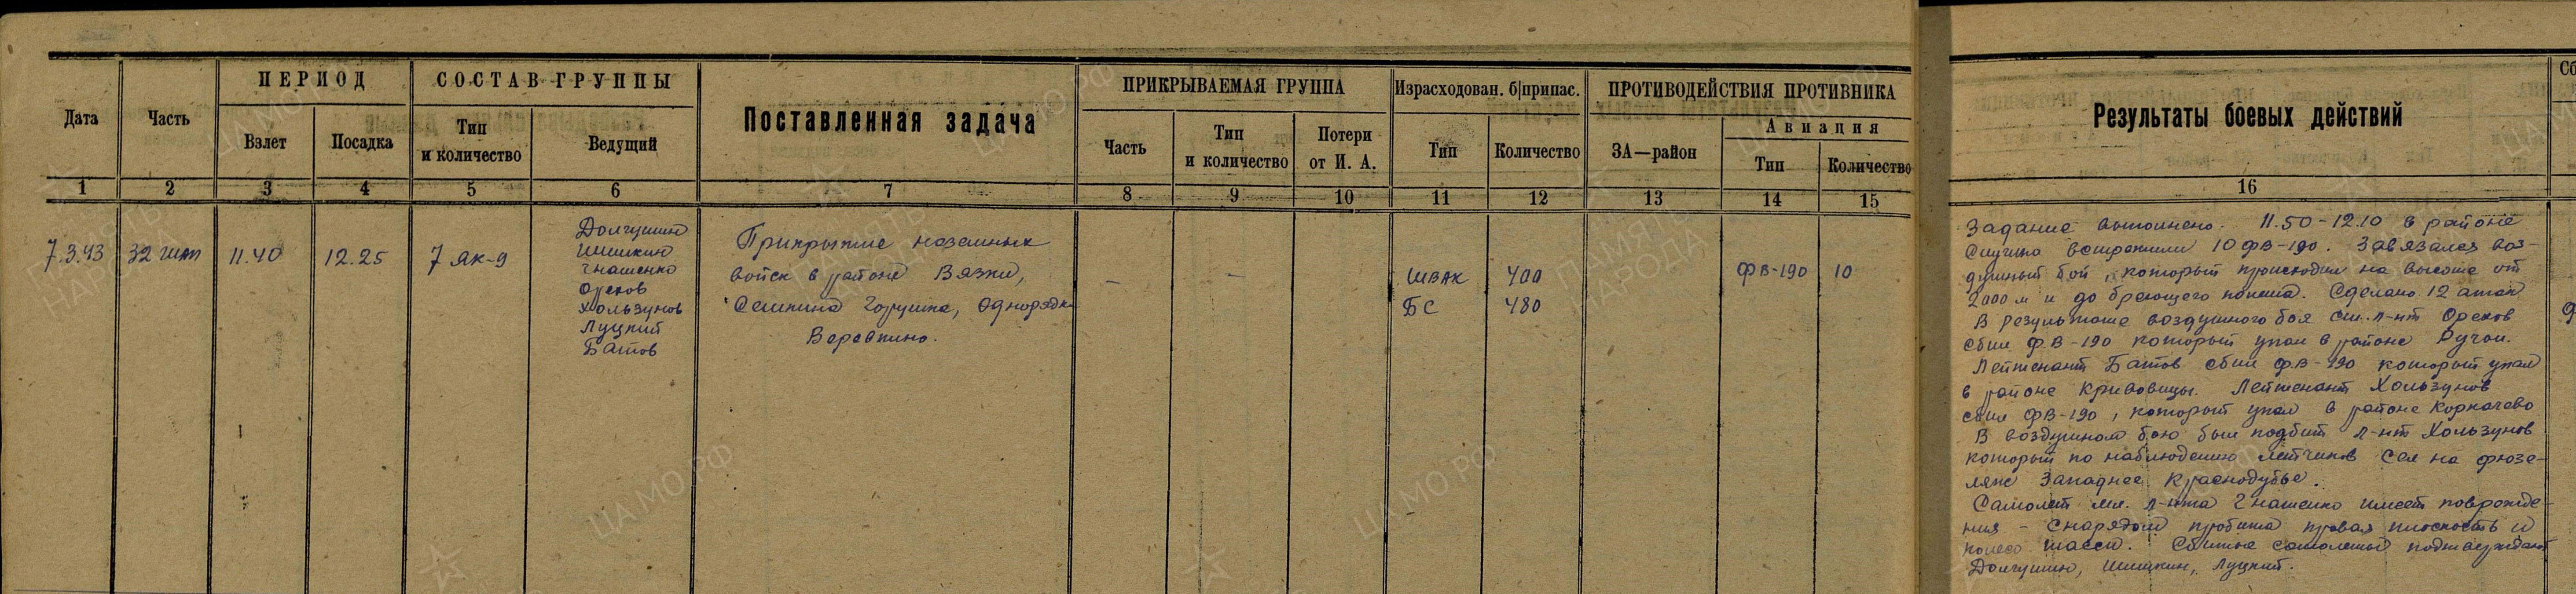 Дата
Часть
ПЕРИОД
Взлет
Посадка
СОСТАВ ГРУППЫ
Тип
и количество
Ведущий
Поставленная задача
ПРИКРЫВАЕМАЯ ГРУППА
Часть
Тип
и количество
Потери
от И. А.
Израсходован. б|припас.
Тип
Количество
ПРОТИВОДЕЙСТВИЯ ПРОТИВНИКА
ЗА—район
Авиация
Тип
Количество
Результаты боевых действий
Сб
1 2 3 4 5 6 7 8 9 10 11 12 13 14 15 16
7.3.43 32 гиап 11.40 12.25 7 Як-9
Долгушин
Шишкин
Гнатенко
Орехов
Хользунов
Луцкий
Батов
Прикрытие наземных
войск в районе Вязки,
Семкина Горушка, Однорядк
Веревкино.
— —
ШВАК 400
БС 480
ФВ-190 10
Задание выполнено. 11.50-12.10 в районе
встретили 10 ФВ-190. Завязался воз-
душный бой, который происходил на высоте от
2000 м и до бреющего полета. Сделано 12 атак
В результате воздушного боя ст. л-нт Орехов
сбил ФВ-190 который упал в районе Ручьи.
Лейтенант Батов сбил ФВ-190 который упал
в районе Кривовицы. Лейтенант Хользунов
сбил ФВ-190, который упал в районе Корпачево
В воздушном бою был подбит л-нт Хользунов
который по наблюдению летчиков сел на фюзе-
ляж Западнее Краснодубье.
Самолет мл. л-нта Гнатенко имеет поврежде-
ния - снарядом пробита правая плоскость и
колесо шасси. Сбитые самолеты подтверждают
Долгушин, Шишкин, Луцкий.
ЦАМО РФ
ПАМЯТЬ НАРОДА